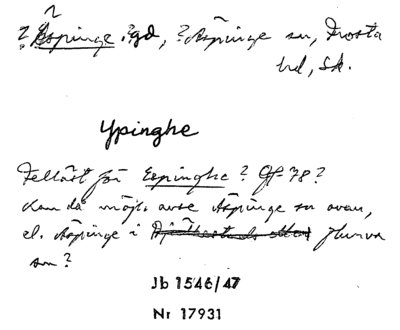 ? Äspinge ? gd, ? Äspinge sn, Frosta
hd, Sk.
Ypinghe
Felläst för Espinghe? Gf 78?
Kan då möjl. avse Äspinge sn ovan,
el. Äspinge i Hurva
sn?
Jb 1546/47
Nr 17931